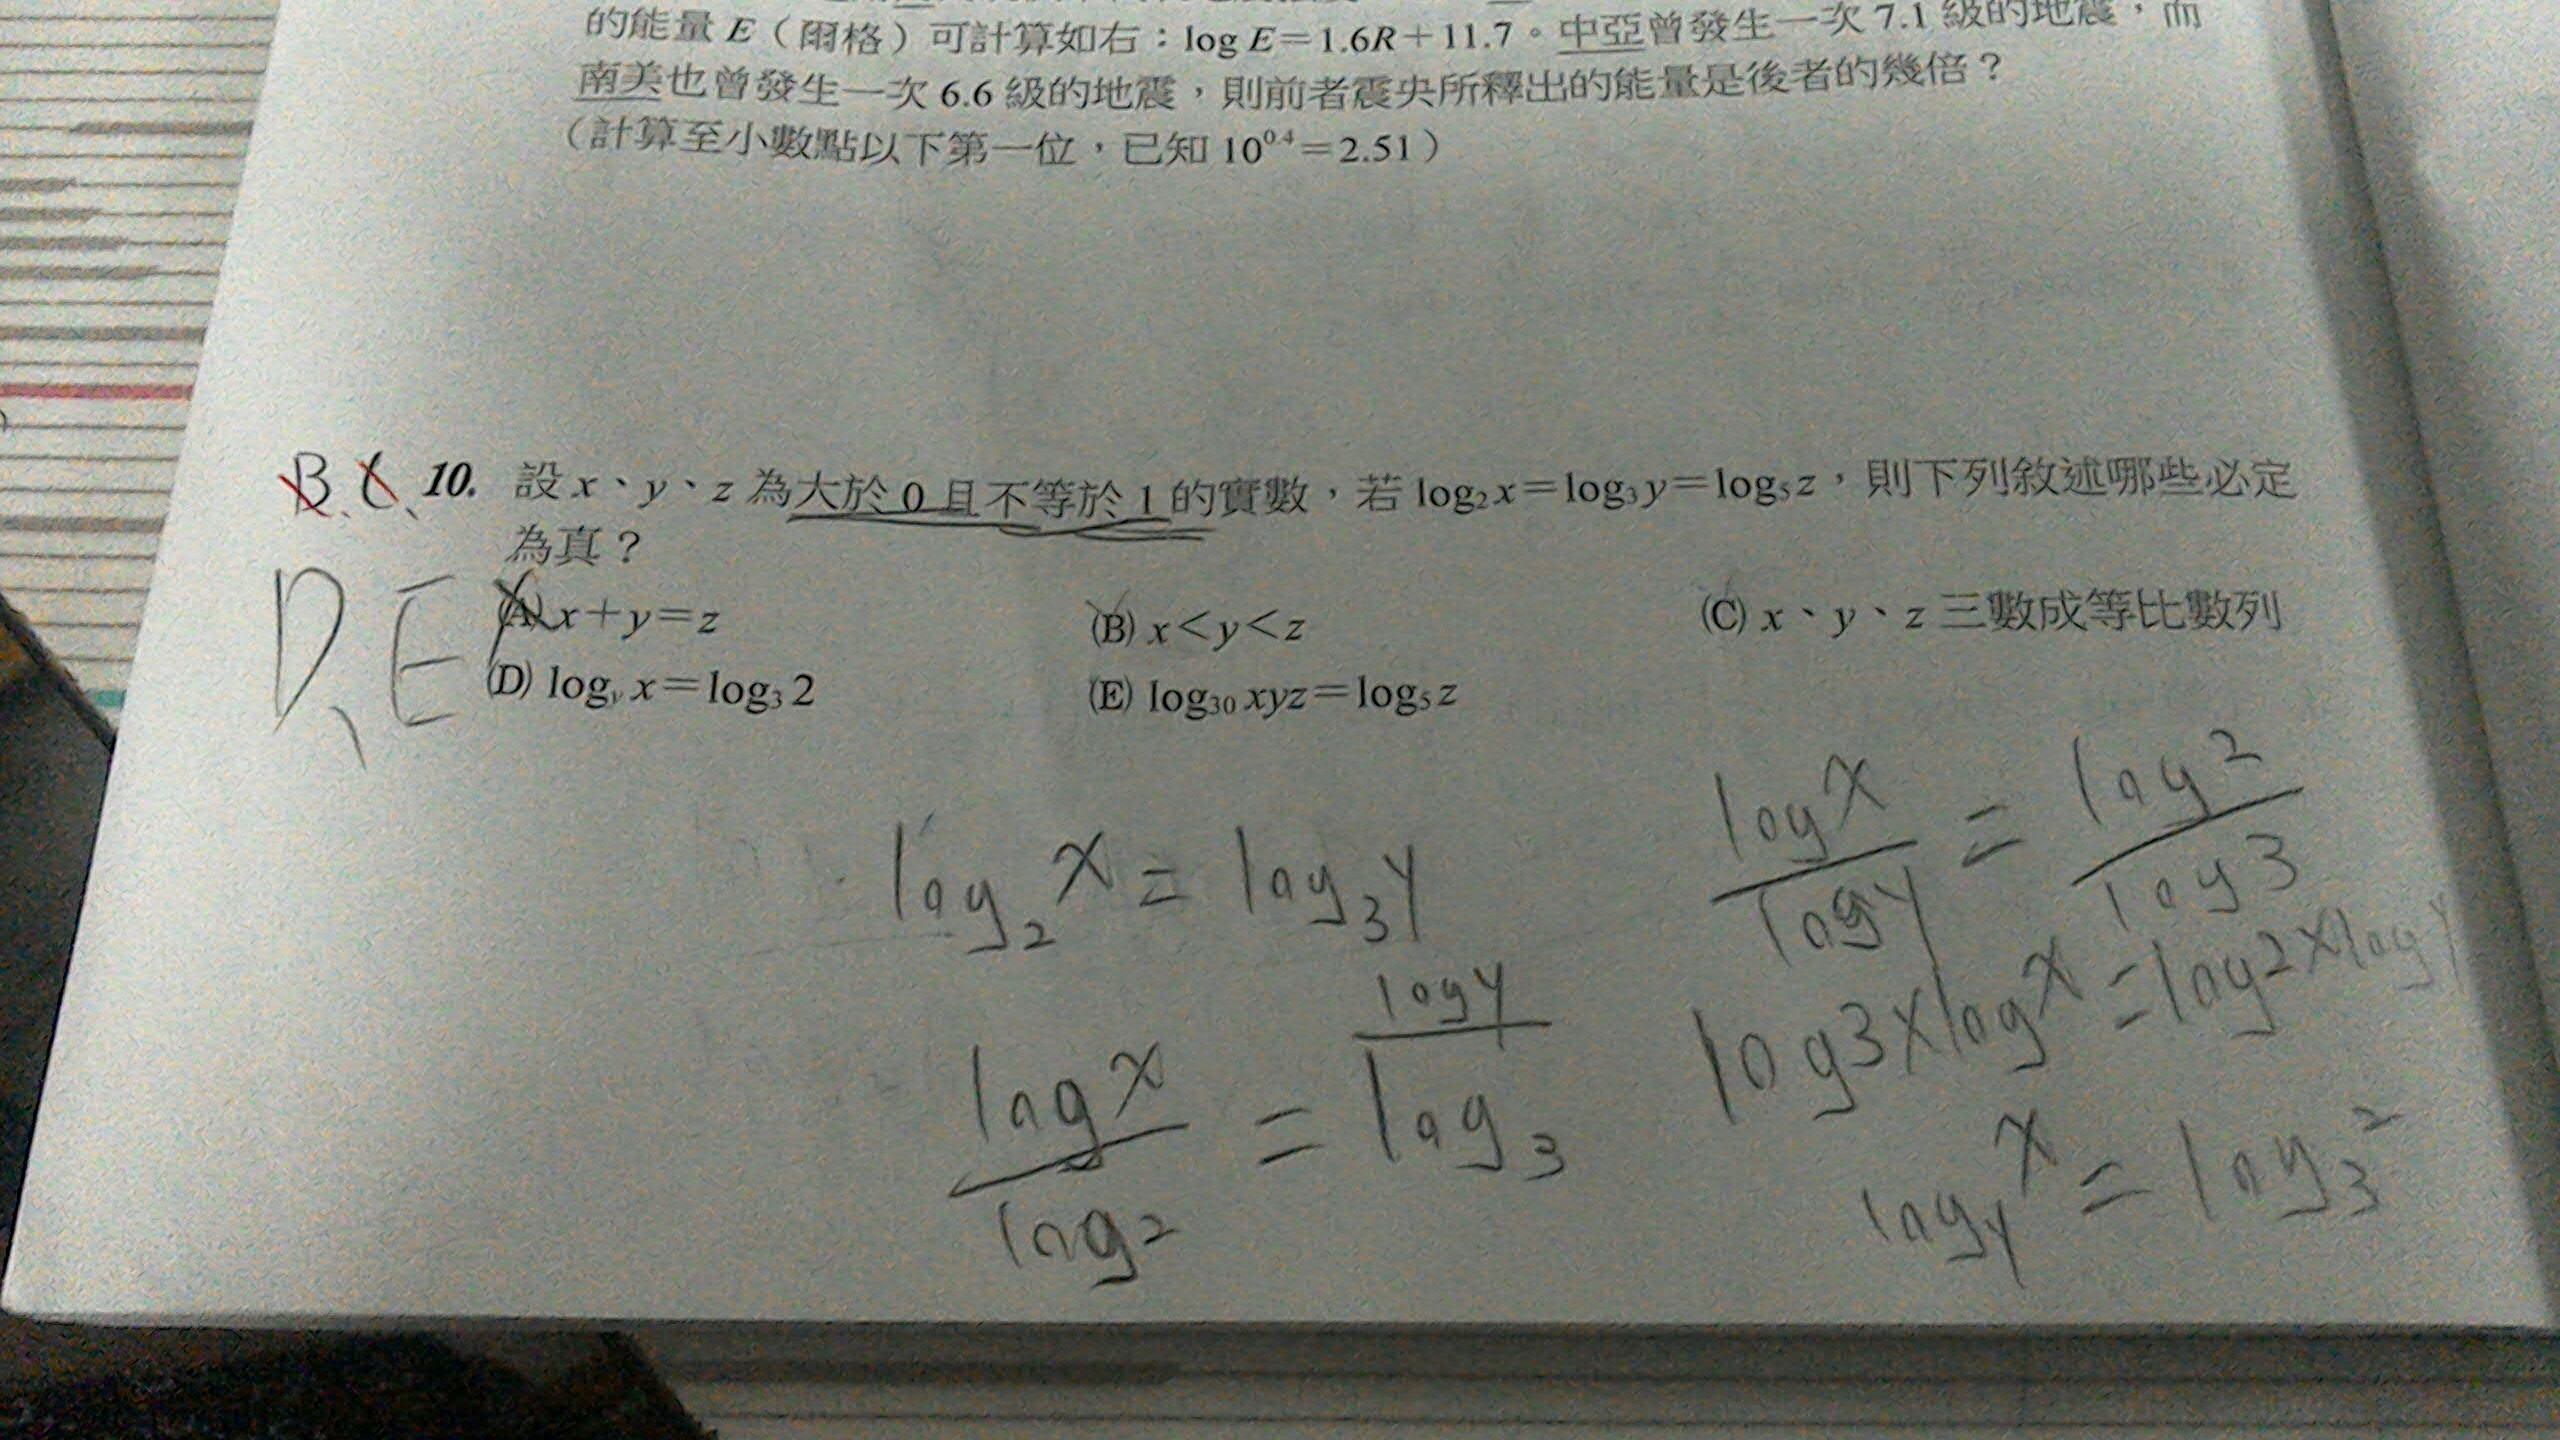 的能量 E（爾格）可計算如右：log E＝1.6R＋11.7。中亞曾發生一次 7.1 級的地震，而
南美也曾發生一次 6.6 級的地震，則前者震央所釋出的能量是後者的幾倍？
（計算至小數點以下第一位，已知 10^0.4＝2.51）
B、C、 10. 設 x、y、z 為大於 0 且不等於 1 的實數，若 log₂x＝log₃y＝log₅z，則下列敘述哪些必定
為真？
D、E
(A) x＋y＝z (B) x＜y＜z (C) x、y、z 三數成等比數列
(D) log_y x＝log₃2 (E) log₃₀xyz＝log₅z
log₂x = log₃y
logx/log2 = logy/log3
logx/logy = log2/log3
log3×logx=log2×logy
log_y x = log₃2